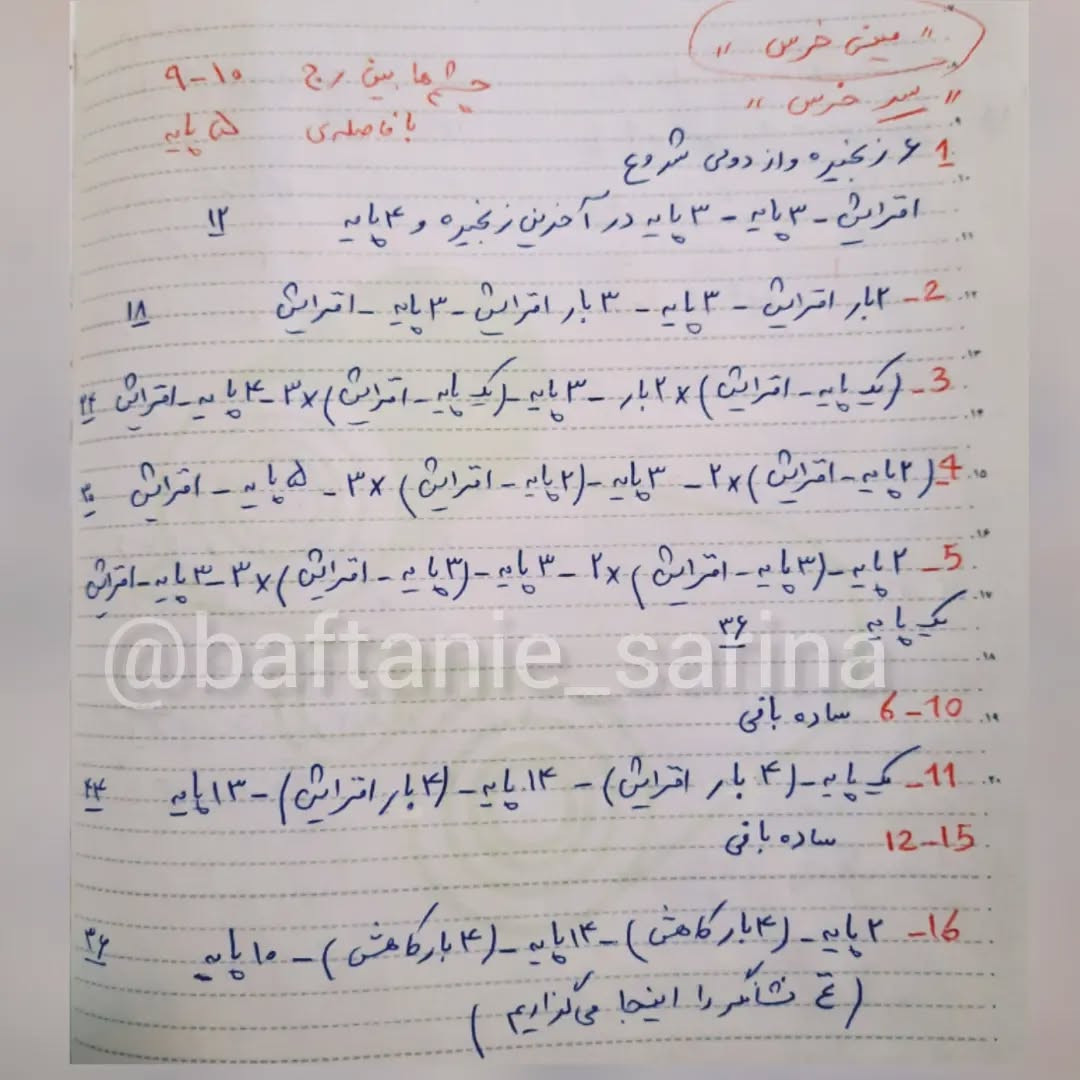 " مینی خرس "
چشم ها بین رج ۱۰-۹
" سر خرس "
با فاصله‌ی ۵ پایه
1 ۶ زنجیره و از دومی شروع
افزایش - ۳ پایه - ۳ پایه در آخرین زنجیره و ۴ پایه ۱۲
2- ۲ بار افزایش - ۳ پایه - ۳ بار افزایش - ۳ پایه - افزایش ۱۸
3- (یک پایه - افزایش) ×۲ بار - ۳ پایه - (یک پایه - افزایش) ×۳ - ۴ پایه - افزایش ۲۴
4 (۲ پایه - افزایش) ×۲ - ۳ پایه - (۲ پایه - افزایش) ×۳ - ۵ پایه - افزایش ۳۰
5- ۲ پایه - (۳ پایه - افزایش) ×۲ - ۳ پایه - (۳ پایه - افزایش) ×۳ - ۳ پایه - افزایش
یک پایه ۳۶
@baftanie_safina
6-10 ساده بافی
11- یک پایه - (۴ بار افزایش) - ۱۴ پایه - (۴ بار افزایش) - ۱۳ پایه ۴۴
12-15 ساده بافی
16- ۲ پایه - (۴ بار کاهش) - ۱۴ پایه - (۴ بار کاهش) - ۱۰ پایه ۳۶
( نشانگر را اینجا می‌گذاریم )